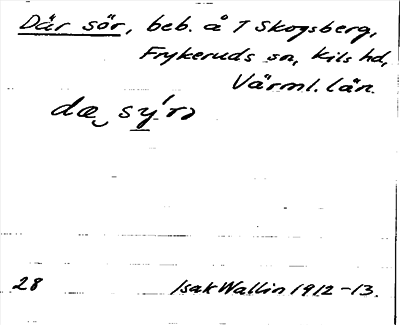 Där sör, beb. å T Skogsberg,
Frykeruds sn, Kils hd,
Värml. län.
28
Isak Wallin 1912-13.